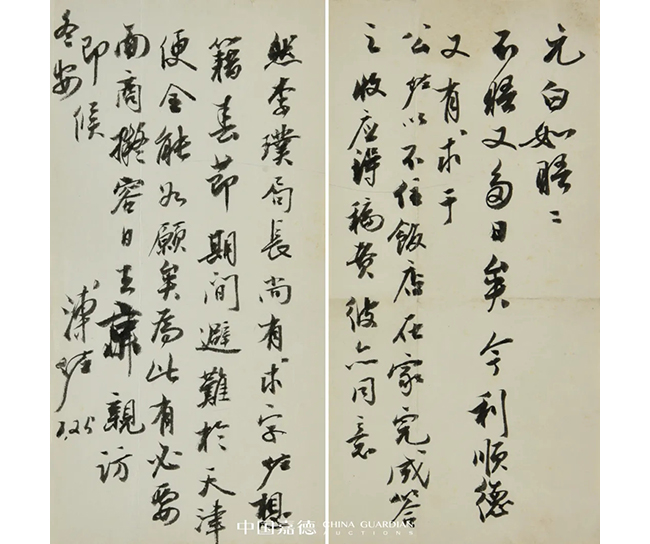 元白如晤〻
不晤又多日矣今利順德
又有求于
公佐以不住飯店在家完成答
之收应得稿费彼亦同意
然李璞局長尚有求字佐想
籍春節期間避難於天津
便全能如願矣為此有必要
面商擬容日去京親訪
即候
冬安
溥佐
中国嘉德 CHINA GUARDIAN
AUCTIONS